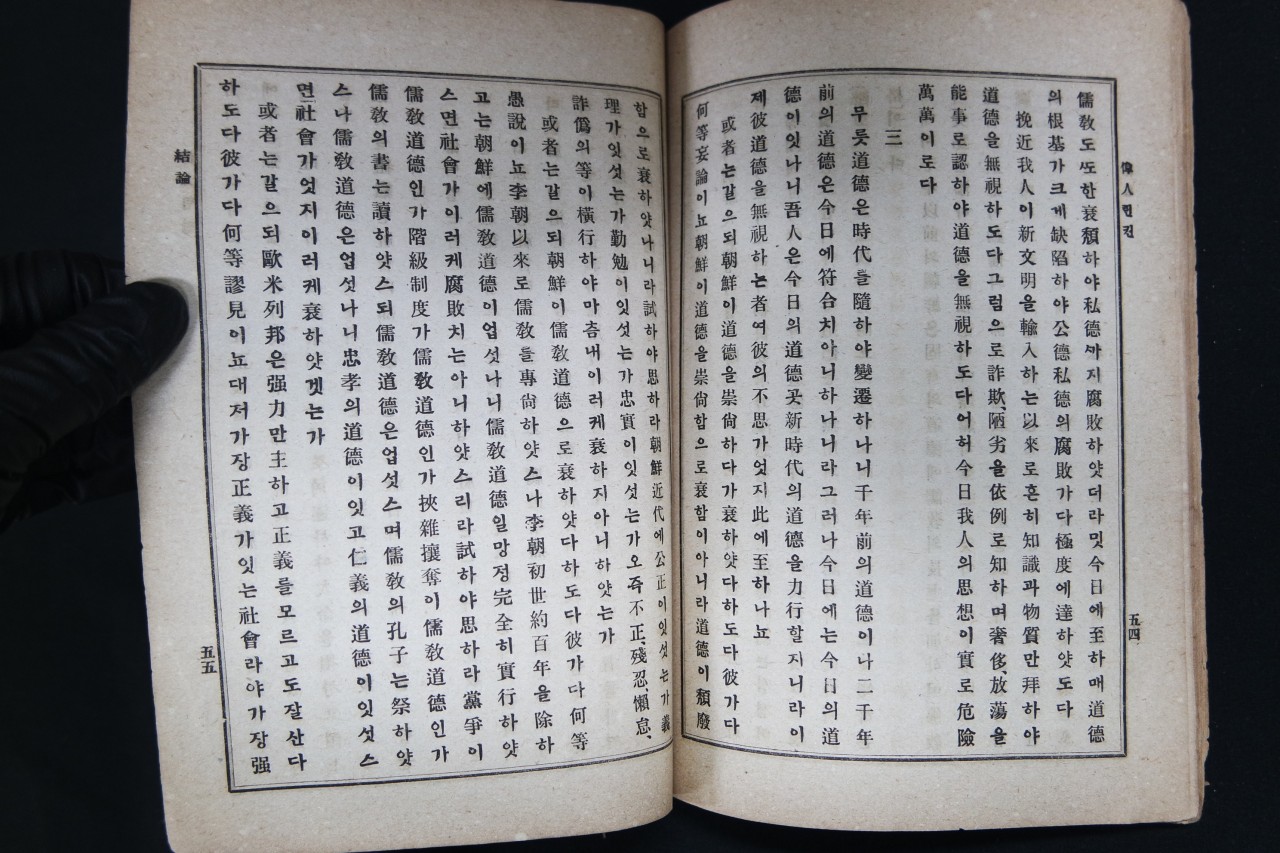 偉人린컨
五四
儒敎도ᄯᅩ한衰頹하야私德ᄭᅡ지腐敗하얏더라밋今日에至하매道德
의根基가크게缺陷하야公德私德의腐敗가다極度에達하얏도다
挽近我人이新文明을輸入하는以來로흔히知識과物質만拜하야
道德을無視하도다그럼으로詐欺、陋劣을依例로知하며奢侈、放蕩을
能事로認하야道德을無視하도다어허今日我人의思想이實로危險
萬萬이로다
三
무릇道德은時代를隨하야變遷하나니千年前의道德이나二千年
前의道德은今日에符合치아니하나니라그러나今日에는今日의道
德이잇나니吾人은今日의道德곳新時代의道德을力行할지니라이
제彼道德을無視하는者여彼의不思가엇지此에至하나뇨
或者는갈으되朝鮮이道德을崇尙하다가衰하얏다하도다彼가다
何等妄論이뇨朝鮮이道德을崇尙함으로衰함이아니라道德이頹廢
함으로衰하얏나니라試하야思하라朝鮮近代에公正이잇섯는가義
理가잇섯는가勤勉이잇섯는가忠實이잇섯는가오즉不正、殘忍、懶怠、
詐僞의等이橫行하야마츰내이러케衰하지아니하얏는가
或者는갈으되朝鮮이儒敎道德으로衰하얏다하도다彼가다何等
愚說이뇨李朝以來로儒敎를專尙하얏스나李朝初世約百年을除하
고는朝鮮에儒敎道德이업섯나니儒敎道德일망정完全히實行하얏
스면社會가이러케腐敗치는아니하얏스리라試하야思하라黨爭이
儒敎道德인가階級制度가儒敎道德인가挾雜攘奪이儒敎道德인가
儒敎의書는讀하얏스되儒敎道德은업섯스며儒敎의孔子는祭하얏
스나儒敎道德은업섯나니忠孝의道德이잇고仁義의道德이잇섯스
면社會가엇지이러케衰하얏겟는가
或者는갈으되歐米列邦은强力만主하고正義를모르고도잘산다
하도다彼가다何等謬見이뇨대저가장正義가잇는社會라야가장强
結論
五五